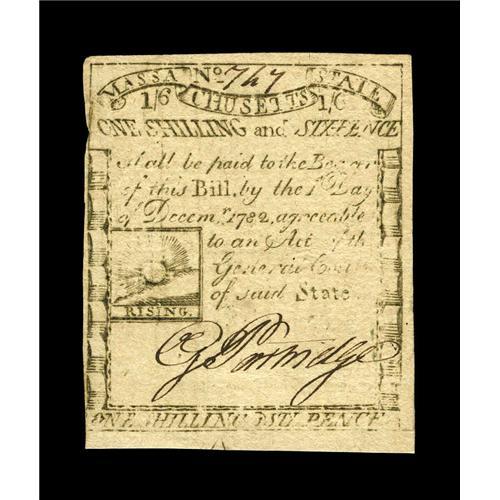 MASSA No 747 STATE
1/6 CHUSETTS 1/6
ONE SHILLING and SIX-PENCE
shall be paid to the Bearer
of this Bill, by the 1st Day
of Decemr. 1782, agreeable
to an Act of the
General Court
of said State
RISING.
G Partridge
ONE SHILLING & SIX PENCE